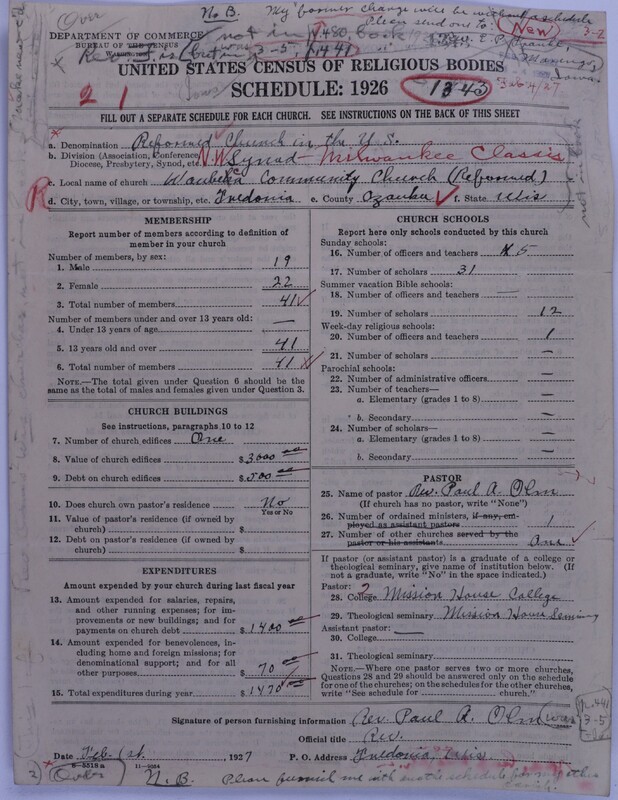 Over
N.B. My former change will be without a schedule
Please send one to
NEW
3-2
DEPARTMENT OF COMMERCE
BUREAU OF THE CENSUS
WASHINGTON
not in 1480, book
3-5
1441
UNITED STATES CENSUS OF RELIGIOUS BODIES
SCHEDULE: 1926
1343
Feb 4/27
2 1
FILL OUT A SEPARATE SCHEDULE FOR EACH CHURCH. SEE INSTRUCTIONS ON THE BACK OF THIS SHEET
a. Denomination Reformed Church in the U.S.
b. Division (Association, Conference, Diocese, Presbytery, Synod, etc.) N.W. Synod - Milwaukee Classis
c. Local name of church Waubeka Community Church (Reformed)
R
d. City, town, village, or township, etc. Fredonia e. County Ozaukee f. State Wis
MEMBERSHIP
Report number of members according to definition of
member in your church
Number of members, by sex:
1. Male 19
2. Female 22
3. Total number of members 41
Number of members under and over 13 years old:
4. Under 13 years of age —
5. 13 years old and over 41
6. Total number of members 41
NOTE.—The total given under Question 6 should be the
same as the total of males and females given under Question 3.
CHURCH BUILDINGS
See instructions, paragraphs 10 to 12
7. Number of church edifices One
8. Value of church edifices $ 3000
9. Debt on church edifices $ 500
10. Does church own pastor's residence? No
Yes or No
11. Value of pastor's residence (if owned by
church) $
12. Debt on pastor's residence (if owned by
church) $
EXPENDITURES
Amount expended by your church during last fiscal year
13. Amount expended for salaries, repairs,
and other running expenses; for im-
provements or new buildings; and for
payments on church debt $ 1400
14. Amount expended for benevolences, in-
cluding home and foreign missions; for
denominational support; and for all
other purposes $ 70
15. Total expenditures during year $ 1470
CHURCH SCHOOLS
Report here only schools conducted by this church
Sunday schools:
16. Number of officers and teachers 5
17. Number of scholars 31
Summer vacation Bible schools:
18. Number of officers and teachers —
19. Number of scholars 12
Week-day religious schools:
20. Number of officers and teachers 1
21. Number of scholars —
Parochial schools:
22. Number of administrative officers —
23. Number of teachers—
a. Elementary (grades 1 to 8) —
b. Secondary —
24. Number of scholars—
a. Elementary (grades 1 to 8) —
b. Secondary —
PASTOR
25. Name of pastor Rev. Paul A. Olm
(If church has no pastor, write "None")
26. Number of ordained ministers, if any, em-
ployed as assistant pastors 1
27. Number of other churches served by the
pastor or his assistants One
If pastor (or assistant pastor) is a graduate of a college or
theological seminary, give name of institution below. (If
not a graduate, write "No" in the space indicated.)
Pastor:
28. College Mission House College
29. Theological seminary Mission House Seminary
Assistant pastor:
30. College —
31. Theological seminary
NOTE.—Where one pastor serves two or more churches,
Questions 28 and 29 should be answered only on the schedule
for one of the churches; on the schedules for the other churches,
write "See schedule for church."
Signature of person furnishing information Rev. Paul A. Olm
1441
3-5
Official title Rev.
Date Feb 1st. 1927 P. O. Address Fredonia, Wis
8-5518a 11-9034
N.B. Please furnish me with another schedule for my other